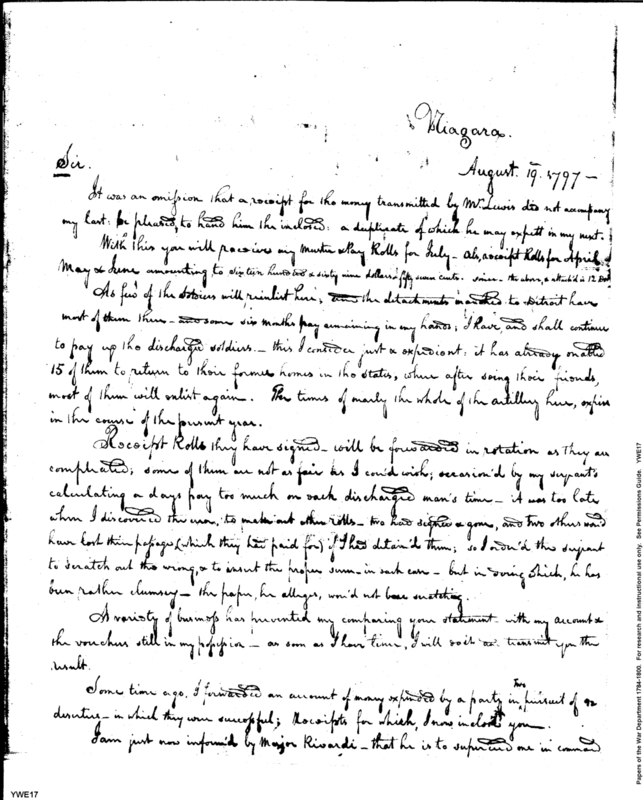 Niagara.
August. 19. 1797 –
Sir.
It was an omission that a receipt for the money transmitted by Mr. Lewis did not accompany
my last: be pleased, to hand him the inclosed: a duplicate of which he may expect in my next.
With this you will receive my Muster & Pay Rolls for July – also, receipt Rolls for April,
May & June amounting to sixteen hundred & sixty nine dollars fifty seven cents. the above,
As few of the soldiers will reinlist here; the detachments marched to Detroit have
most of them there – and some six months pay remaining in my hands; I have, and shall continue
to pay up the discharged soldiers. – this I consider just & expedient; it has already enabled
15 of them to return to their former homes in the states, where after seeing their friends,
most of them will enlist again. The times of nearly the whole of the artillery here, expire
in the course of the present year.
Receipt Rolls they have signed – will be forwarded in rotation as they are
compleated; some of them are not as fair as I could wish; occasion'd by my serjeant's
calculating a days pay too much on each discharged man's time – it was too late
when I discovered the error, to make out other rolls – two had signed & gone, and two others would
have lost their passage, (which they had paid for) if I had detain'd them; so I order'd the serjeant
to scratch out the wrong, & to insert the proper sum in each case – but in doing which, he has
been rather clumsey – the paper, he alleges, wou'd not bear scratching.
A variety of business has prevented my comparing your statement with my account &
the vouchers still in my possession – as soon as I have time, I will do it & transmit you the
result.
Some time ago, I forwarded an account of money expended by a party in pursuit of Two
deserters – in which they were successful; Receipts for which, I now inclose you.
I am just now inform'd by Major Rivardi – that he is to supersede me in command
YWE17
Papers of the War Department 1784-1800. For research and instructional use only. See Permissions Guide. YWE17